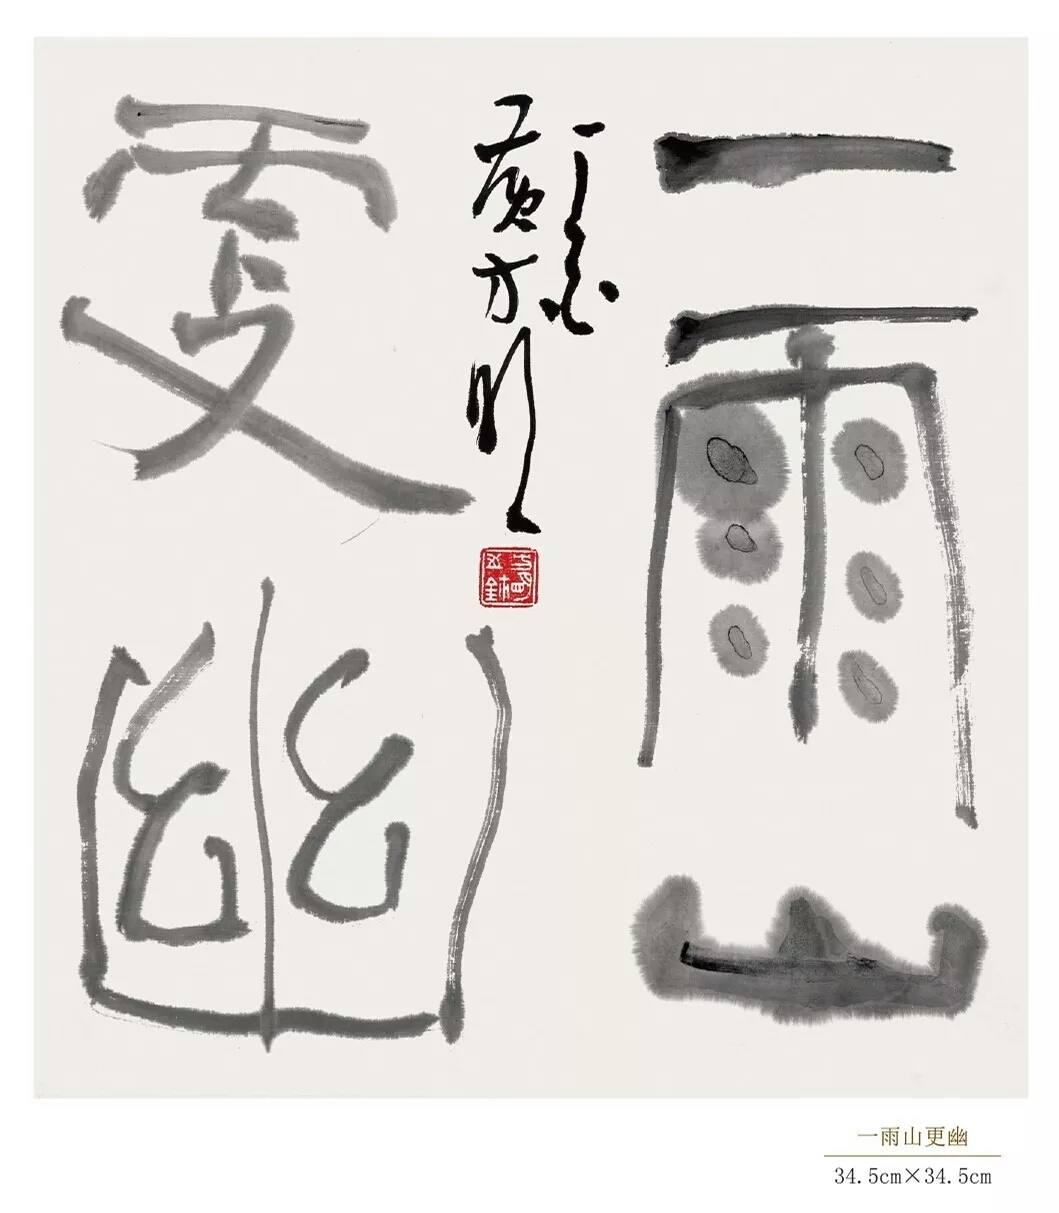 一雨山
更幽
一雨山更幽
34.5cm×34.5cm